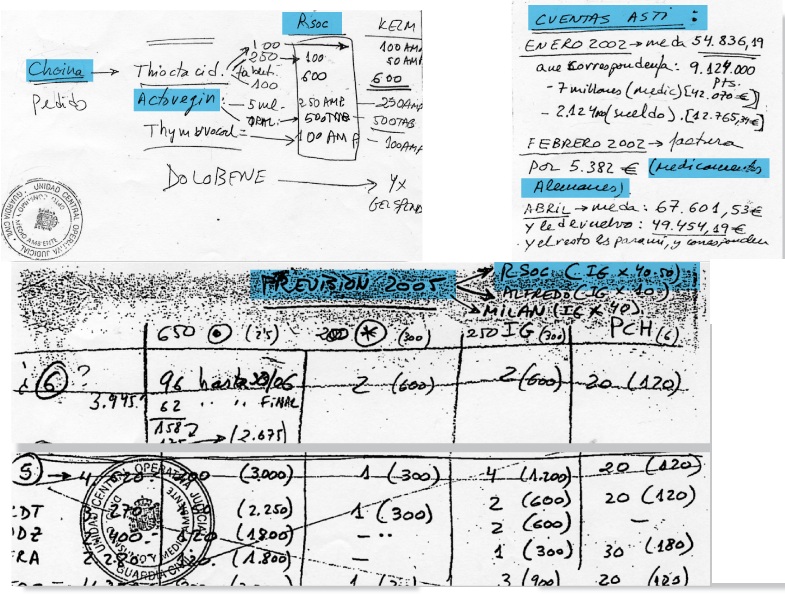 Rsoc KELM
100 100 AMP
250 → 100 50 AMP
Choina → Thioctacid. tabert. 600 600
100
Pedido Actovegin: - 5 ml. - 250 AMP - 250AMP
ORAL: 500TAB - 500TAB
Thymovocal = 100 AMP - 100AMP
DOLOBENE → 4x
UNIDAD CENTRAL OPERATIVA JUDICIAL
GUARDIA CIVIL
MEDIO AMBIENTE
CUENTAS ASTI :
ENERO 2002 → me da 54.836,19
que correspondenfa: 9.124.000
Pts.
- 7 millones (medic) [42.070 €]
- 2.124 (sueldo). [12.765, €]
FEBRERO 2002 → factura
por 5.382 € (medicamentos
Alemanes).
ABRIL → me da: 67.601,53€
y le devuelvo: 49.454,19 €
y el resto es para mi, y corresponden
PREVISION 2005 → RSOC (IG x 40.50)
→ ALFREDO (IG x 40)
→ MILAN (IG x 40)
650 (25) (300) 250 IG (300) PCH (6)
¿ 6 ? 96 hasta /06 2 (600) 2 (600) 20 (120)
3.945? 62 " " FINAL
158
→ (2.675)
5 → 4 (3.000) 1 (300) 4 (1.200) 20 (120)
DT 270 (2.250) 1 (300) 2 (600) 20 (120)
DZ 400.- 120 (1800) - 2 (600) -
RA (1.800) - 1 (300) 30 (180)
3 (900) 20 (120)
UNIDAD CENTRAL OPERATIVA JUDICIAL
GUARDIA CIVIL